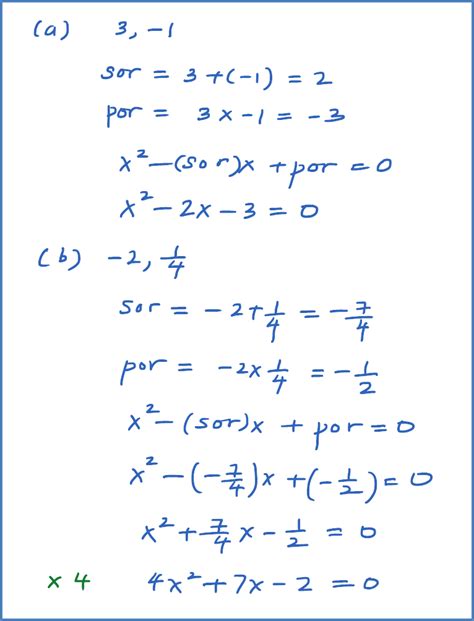 (a) 3, -1
sor = 3 + (-1) = 2
por = 3 x -1 = -3
x² - (sor)x + por = 0
x² - 2x - 3 = 0
(b) -2, 1/4
sor = -2 + 1/4 = -7/4
por = -2 x 1/4 = -1/2
x² - (sor)x + por = 0
x² - (-7/4)x + (-1/2) = 0
x² + 7/4 x - 1/2 = 0
x 4 4x² + 7x - 2 = 0